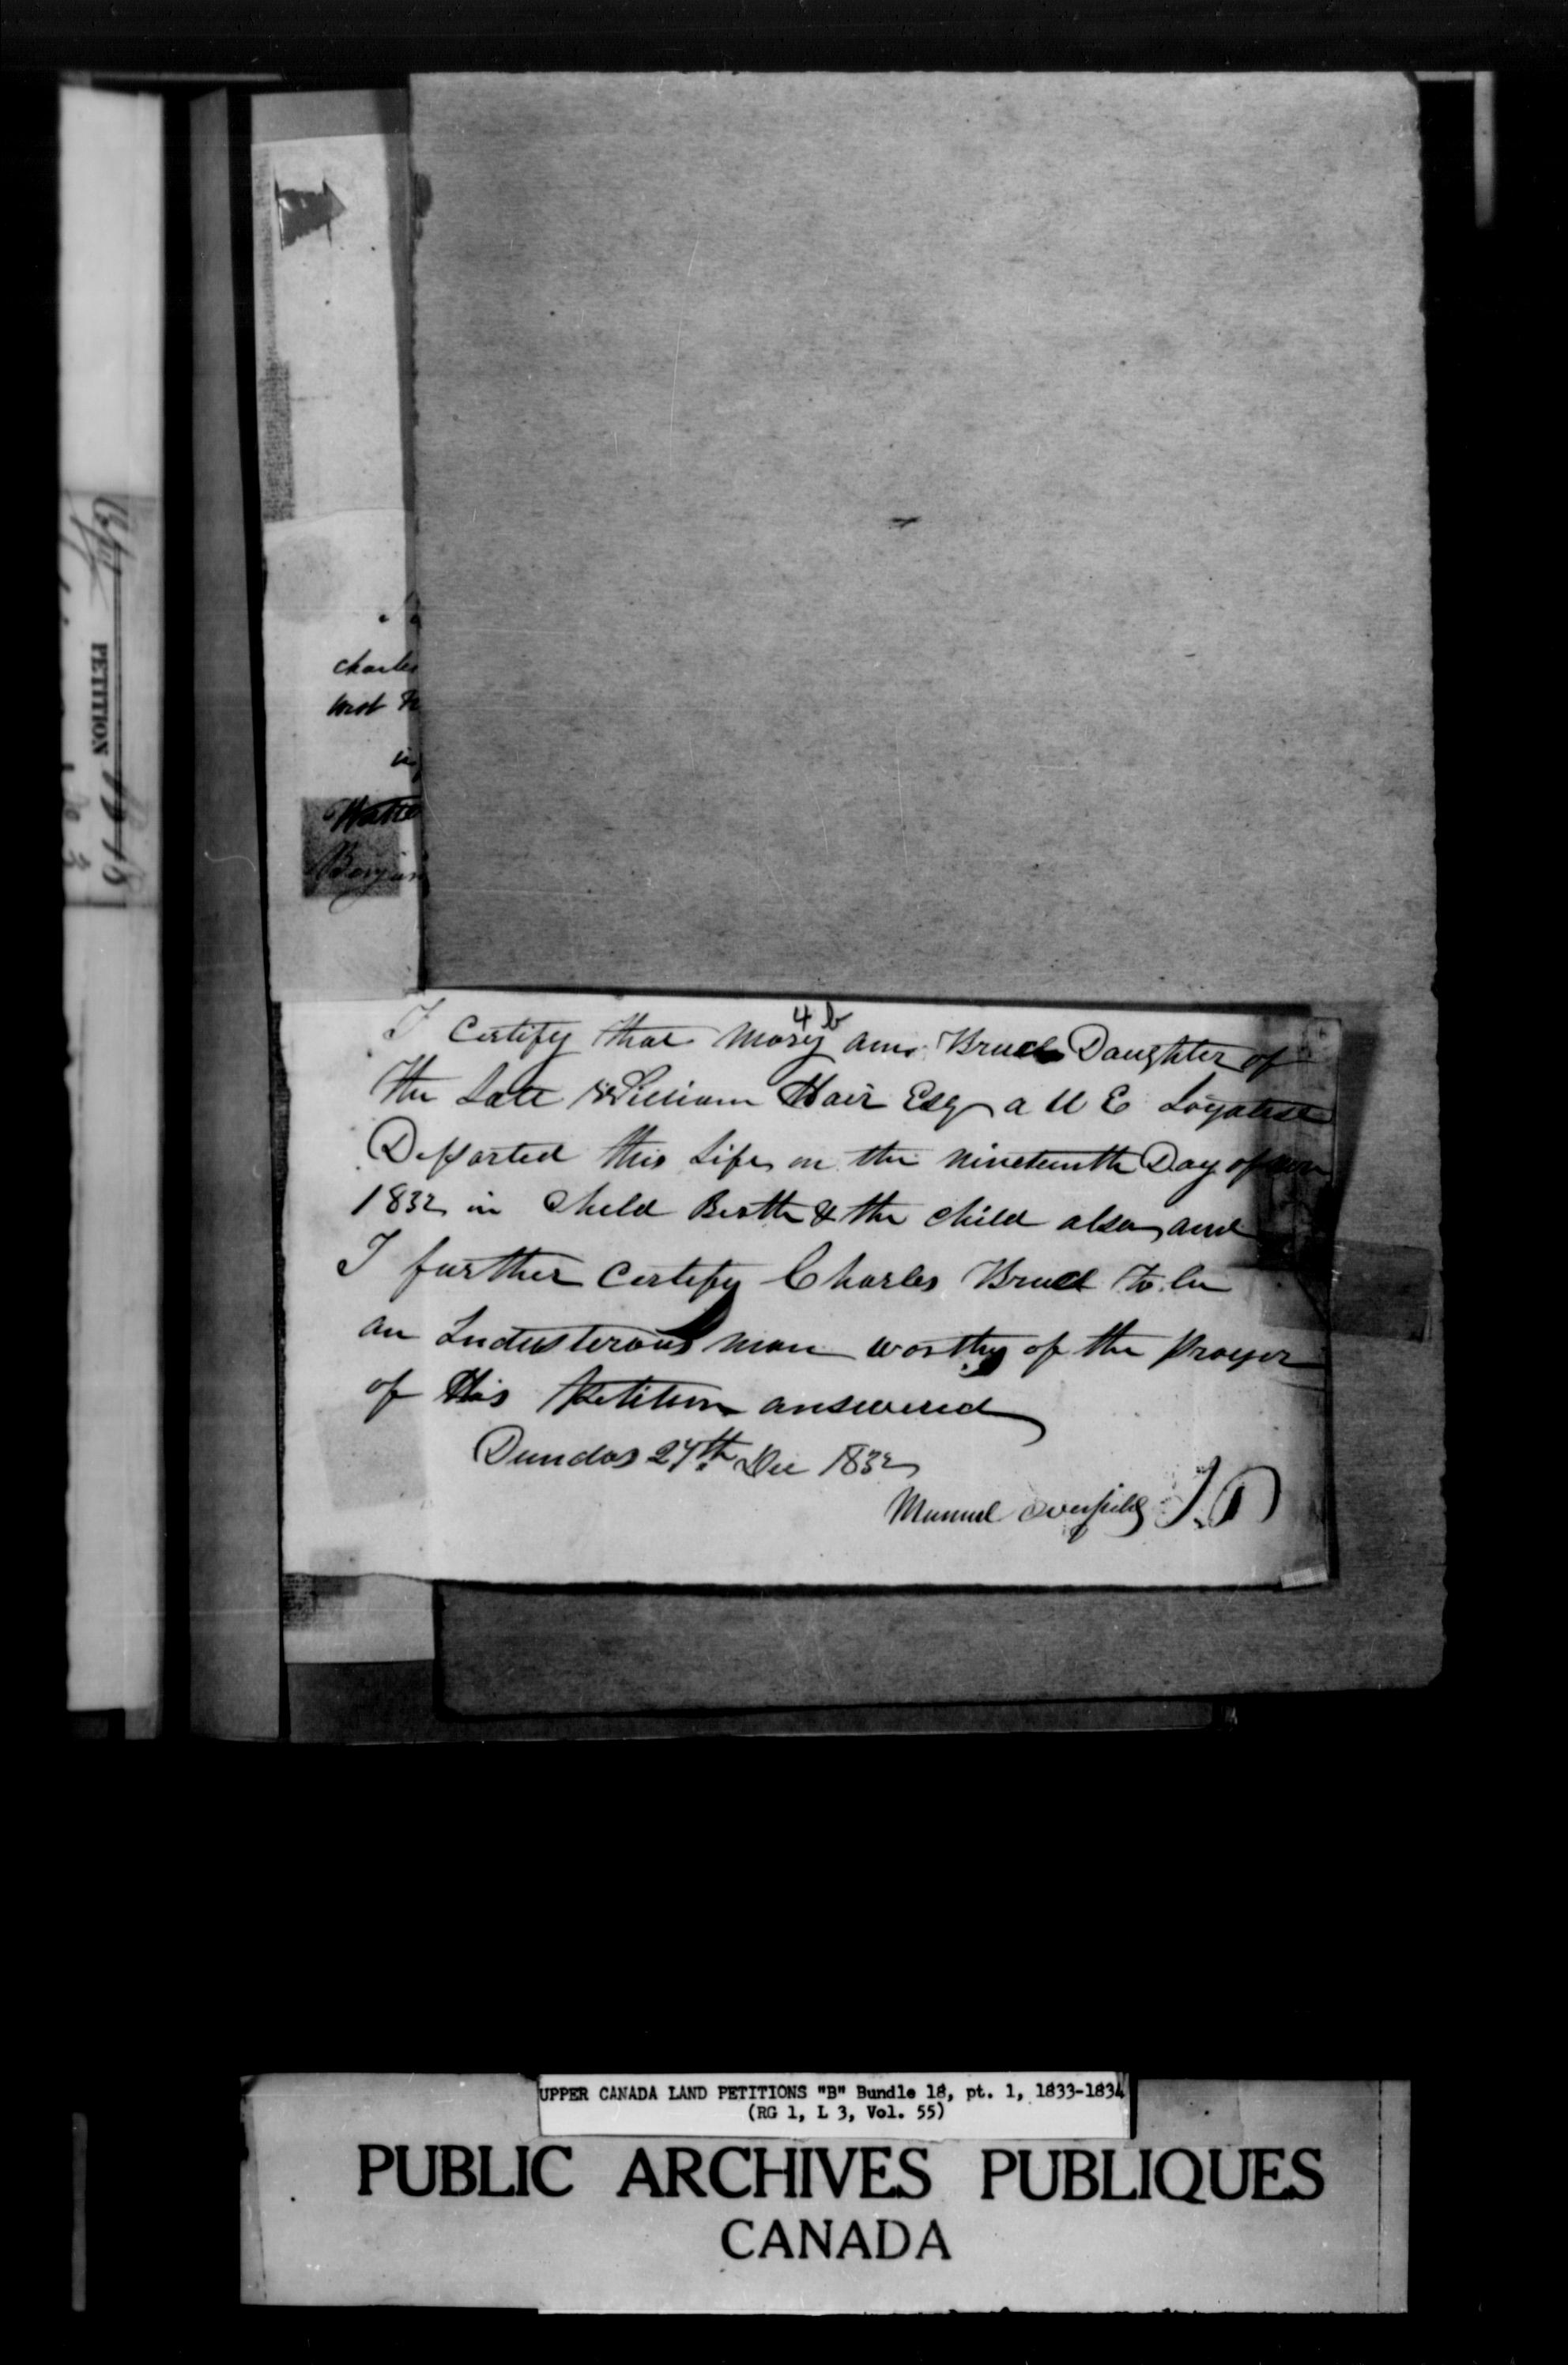 PETITION
charles
4 b
I Certify that Mary ann Bruce Daughter of
the Late William Hair Esq a U E Loyalist
Departed this Life on the nineteenth Day of
1832 in Child Birth & the child also and
I further Certify Charles Bruce to be
an Industerous man worthy of the prayer
of His Petition answered
Dundas 27th Dec 1832
Manuel Overfield J.P
UPPER CANADA LAND PETITIONS "B" Bundle 18, pt. 1, 1833-1834
(RG 1, L 3, Vol. 55)
PUBLIC ARCHIVES PUBLIQUES
CANADA